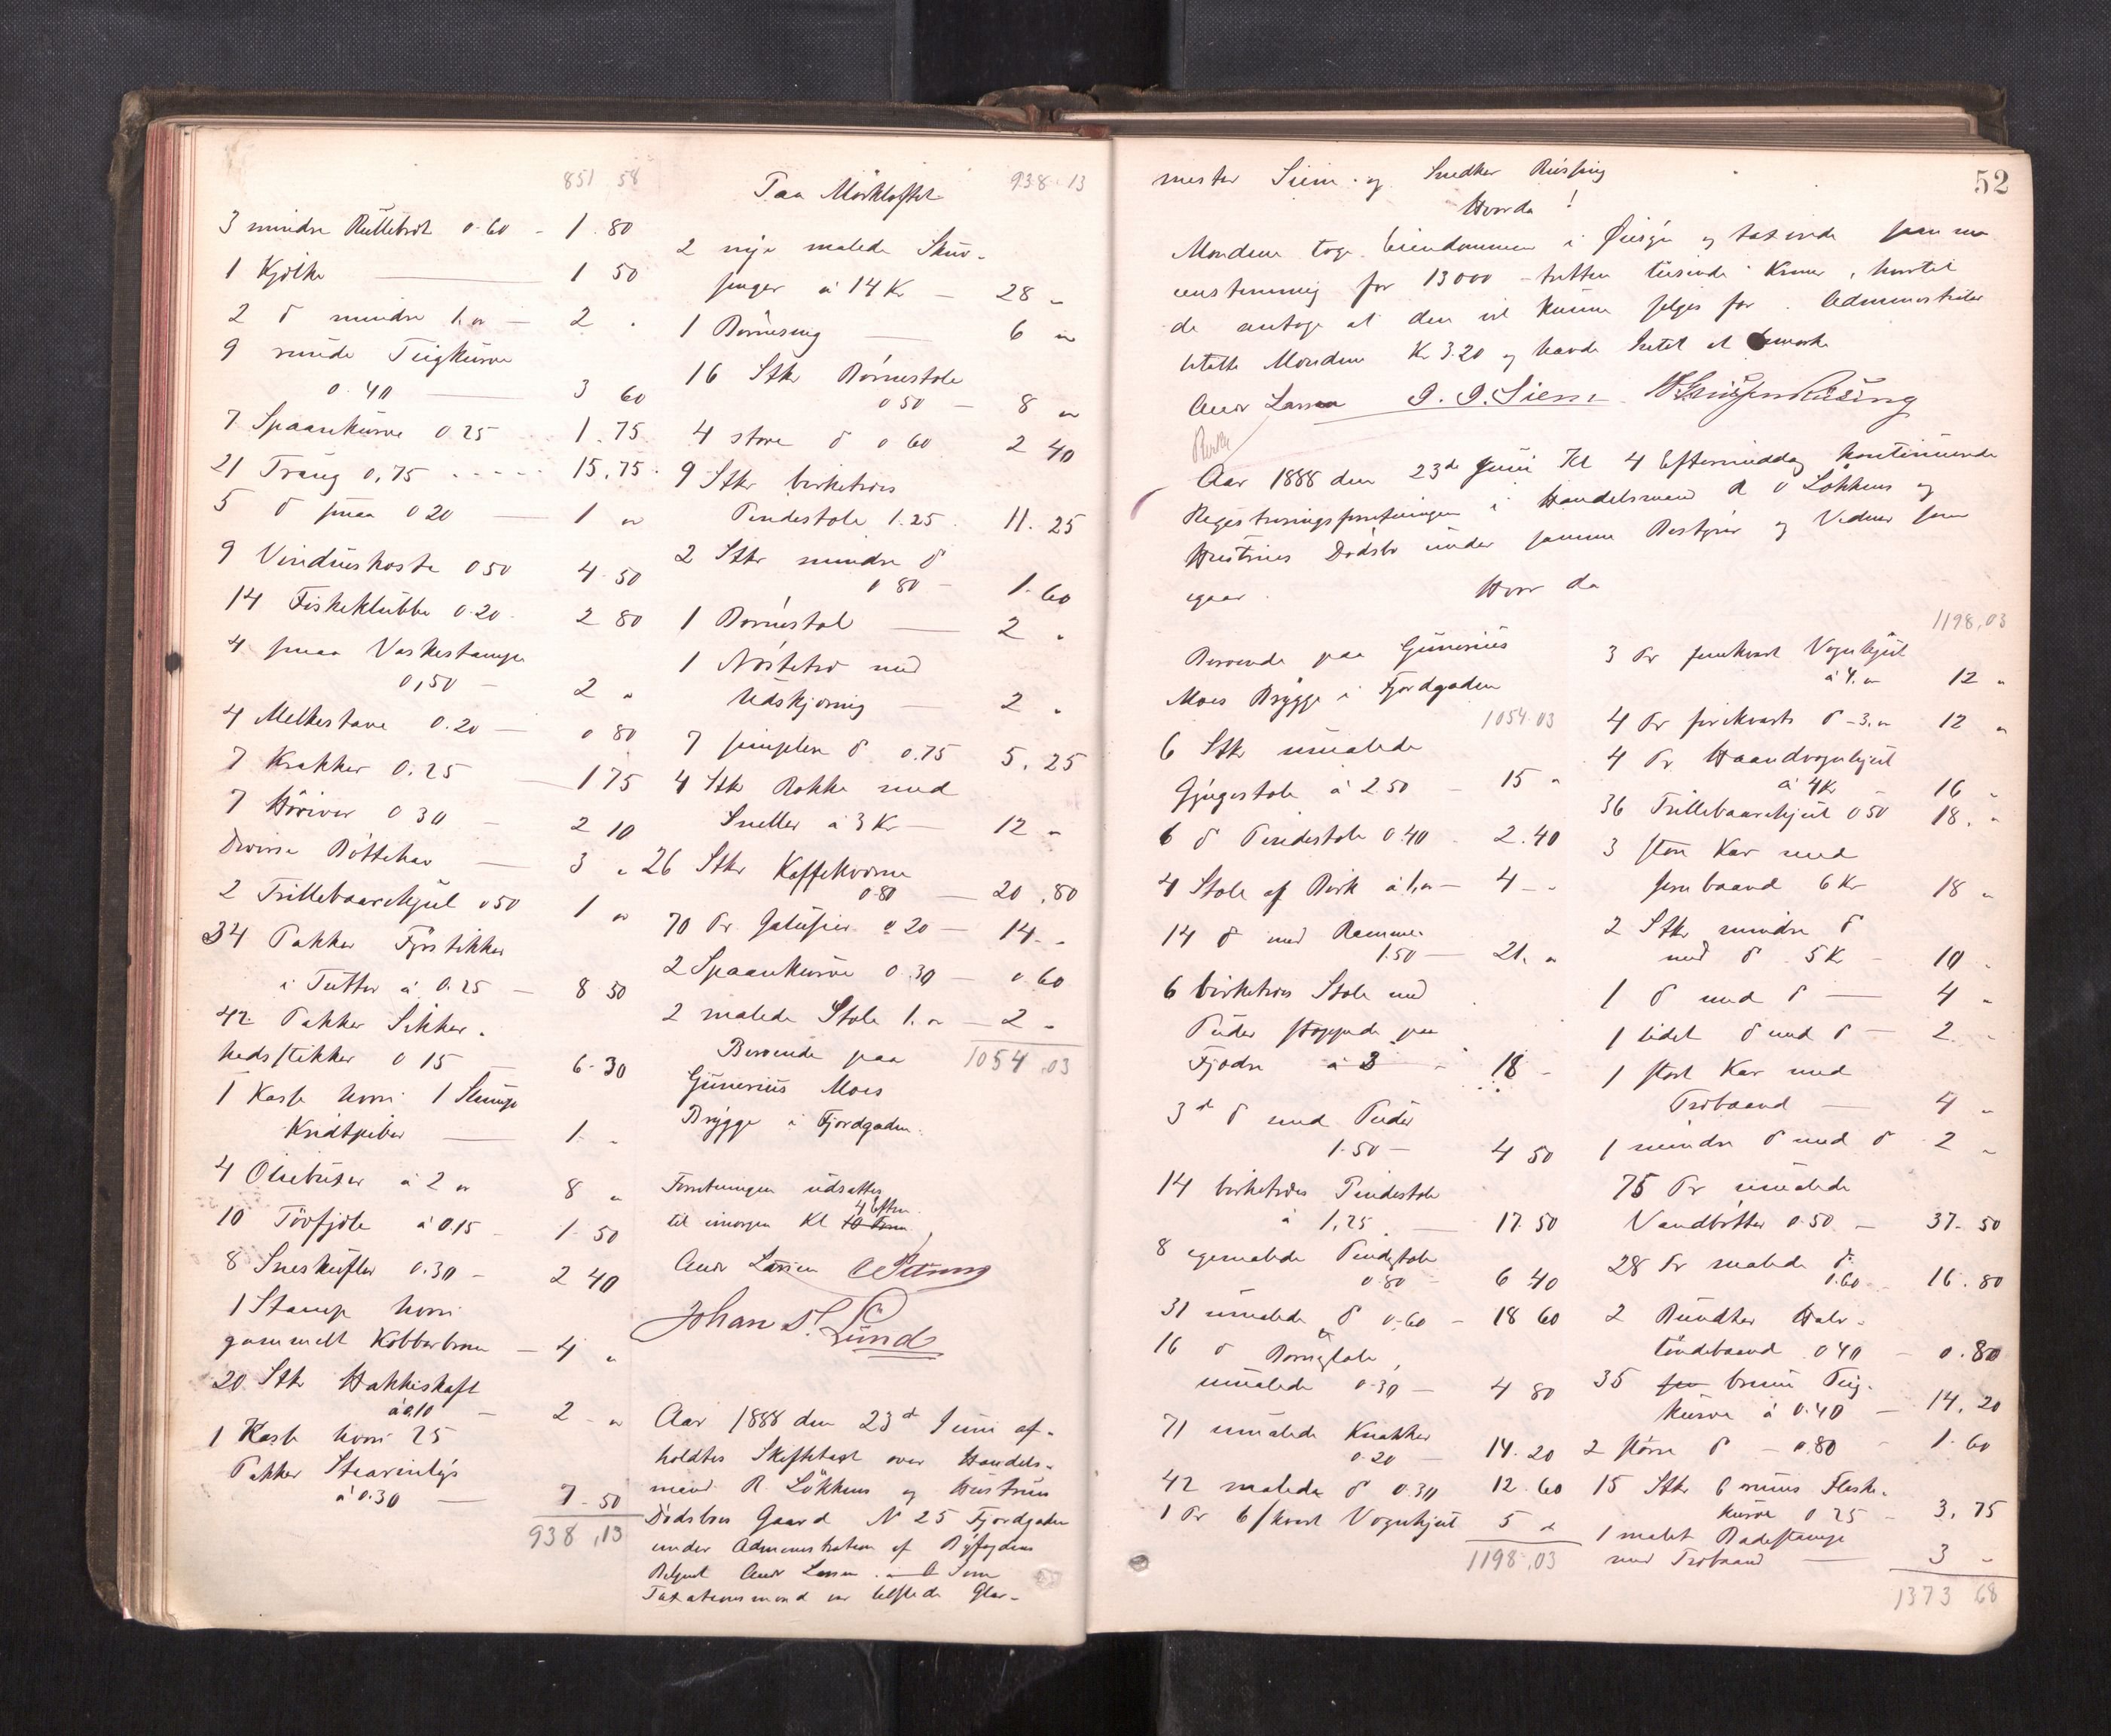 851 58
3 mindre Rullebræt 0.60 - 1.80
1 Kjølke — 1 50
2 do mindre 1. „ — 2 .
9 runde Tugkurve
0.40 — 3 60
7 Spaankurve 0.25 1.75
21 Traug 0,75 - - - - - 15.75.
5 do smaa 0 20 — 1 „
9 Vinduskoste 0 50 4.50
14 Fiskeklubbe 0.20. 2 80
4 smaa Vaskestampe
0,50 - 2 „
4 Melkestave 0.20 — 0 80
7 Krakker 0.25 — 1 75
7 Høriver 0 30 - 2 10
Diverse Bøttehav — 3 „
2 Trillebaarehjul 0 50 1 „
34 Pakker Fyrstikker
i Tutter á 0.25 — 8 50
42 Pakker Sikker-
hedsstikker 0 15 — 6.30
1 Kasse hvori 1 Slump
Kridtpiber — 1. „
4 Oliebuser á 2 „ 8 „
10 Tøvfjøle á 0.15 - 1.50
8 Sneskufler 0.30 - 2 40
1 Stamp hvori
gammelt Kobberbrom — 4 „
20 Stk Hakkeskaft
á 0.10 - 2 - „
1 Kasse hvori 25
Pakker Stearinlys
á 0.30 — 7.50
938,13
Paa Mørkloftet 938.13
2 nye malede Skuv-
senger á 14 Kr — 28 „
1 Barneseng — 6 „
16 Stkr Børnestole
0 50 — 8 „
4 store do 0 60 2 40
9 Stkr birketræs
Pindestole 1.25. 11.25
2 Stkr mindre do
0 80 - 1.60
1 Barnestol — 2 .
1 Nøstetræ med
Udskjæring — 2 .
7 simplere do 0.75 5.25
4 Stk Rokke med
Sneller á 3 Kr — 12 „
26 Stkr Kaffekværne
0.80 — 20.80
70 Pr Galusier 0.20 — 14. „
2 Spaankurve 0.30 — 0 60
2 malede Stole 1. „ — 2 „
Beroende paa 1054.03
Gunerius Moes
Brygge i Fjordgaden.
Forretningen udsattes
4 Eftm.
til imorgen Kl 10 Form
Andr Larsen
Johan L. Lund
Aar 1888 den 23de Juni af-
holdtes Skiftetaxt over Handels-
mand R. Løkkens og Hustrus
Dødsbos Gaard No 25 Fjordgaden
under Administration af Byfogdens
Betjent Andr Larsen. Som
Taxationsmænd var tilstede Glar-
52
mester Siem. og Snedker Rüssing
Hvorda!
Mændene toge Eiendommen i Øiesyn og taxerede som
eenstemmig for 13000 - tretten tusinde Kroner, hvortil
de antage at den vil kunne sælges for. Administrator
betalte Mændene Kr 3.20 og havde Intet at bemærke
Andr Larsen J. J. Siem
Aar 1888 den 23de Juni Kl 4 Eftermiddag kontinuerede
Registreringsforretningen i Handelsmand R O Løkkens og
Hustrues Dødsbo under samme Bestyrer og Vidner som
igaar. Hvor da
Beroende paa Gunerius
Moes Brygge i Fjordgaden
1054.03
6 Stkr umalede
Gjyngestole á 2.50 — 15 „
6 do Pindestole 0.40 - 2.40
4 Stole af Birk á 1. „ — 4 - -
14 do med Rammer
1.50 — 21. „
6 birketræs Stole med
Puder stoppede paa
Fjædre á 3 - 18 -
3 do do med Puder
1.50 — 4 50
14 birketræs Pindestole
á 1,25 — 17.50
8 egemalede Pindestole
0.80 - 6 40
31 umalede do 0.60 - 18 60
16 do Børnestole,
umalede 0.30 — 4 80
71 umalede Krakker
0.20 — 14.20
42 malede do 0.30 12.60
1 Pr 6/kvart Vognhjul 5 „
1198.03
1198.03
3 Pr femkvart Vognhjul
á 4. „ 12 „
4 Pr firekvarts do - 3. „ 12 „
4 Pr Haandvognhjul
á 4 Kr 16 „
36 Trillebaarehjul 0 50 18. „
3 store Kar med
Jernbaand 6 Kr 18 „
2 Stkr mindre do
med do 5 Kr - 10 „
1 do med do — 4 „
1 lidet do med do — 2. „
1 stort Kar med
Træbaand — 4 „
1 mindre do med do 2 „
75 Pr umalede
Vandbøtter 0.50 — 37.50
28 Pr malede do
0.60 - 16.80
2 Bundter Halv-
tøndebaand 0 40 - 0.80
35 brune Tug-
kurve á 0.40 — 14.20
2 større do - 0.80 - 1.60
15 Stkr Flaske-
kurve 0 25 - 3.75
1 malet Badestampe
med Træbaand — 3 „
1373 68